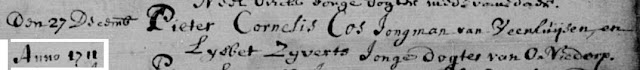 Den 27 Decemb Pieter Cornelis Cos Jongman van Veenluijsen, en
Anno 1711 Lysbet Zyverts Jonge dogter van O. Niedorp.